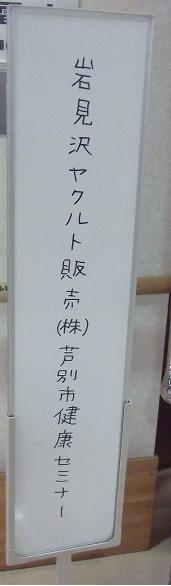 岩見沢ヤクルト販売(株)芦別市健康セミナー